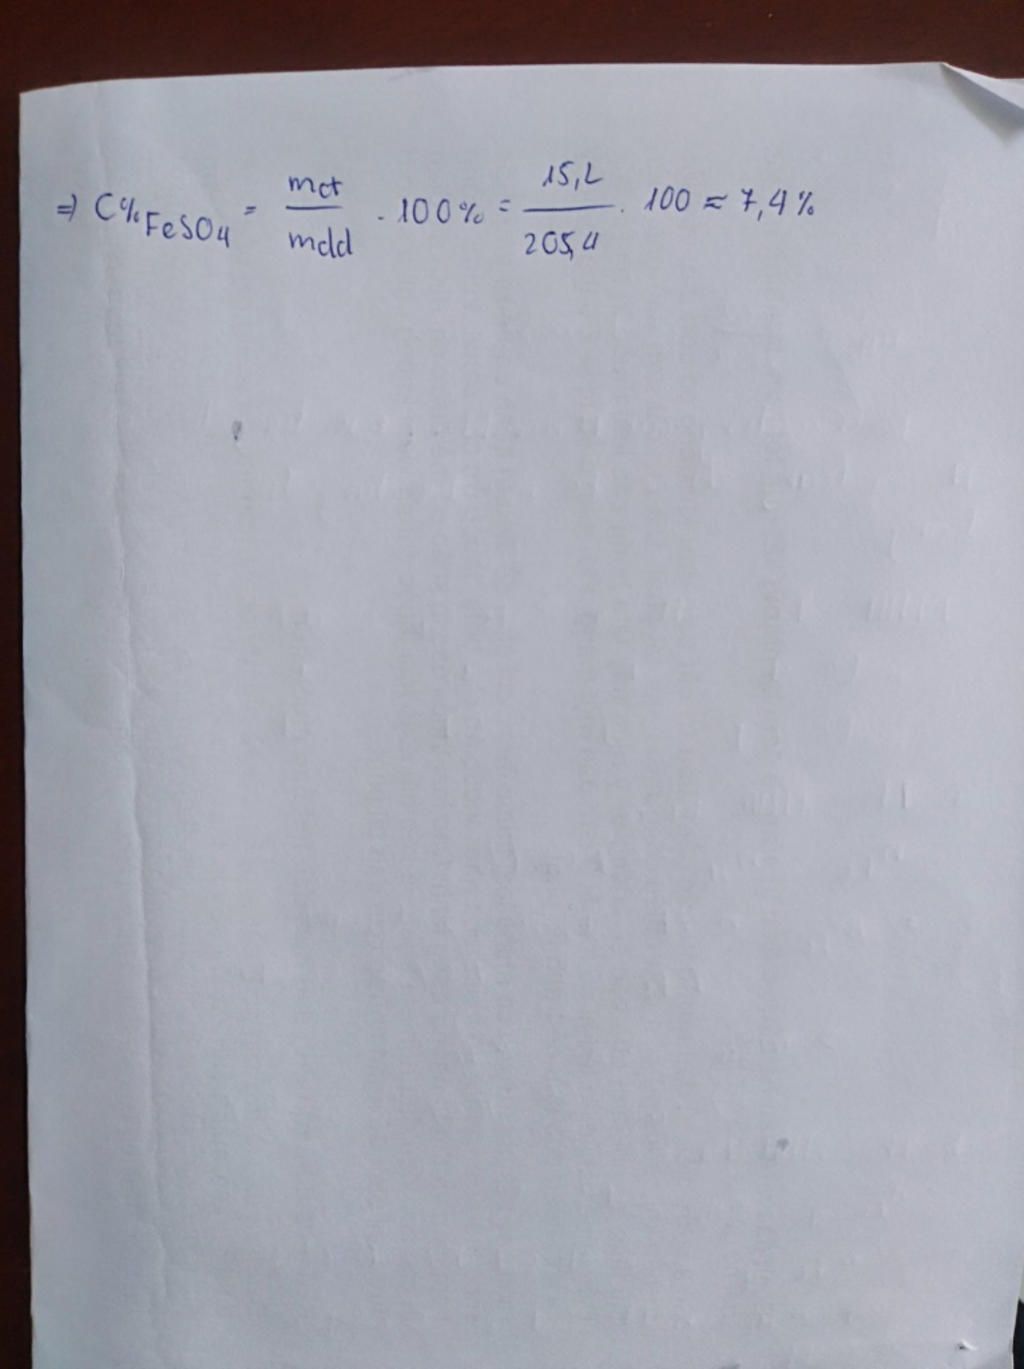 ⇒ C%FeSO4 = mct/mdd . 100% = 15,2/205,4 . 100 ≈ 7,4%